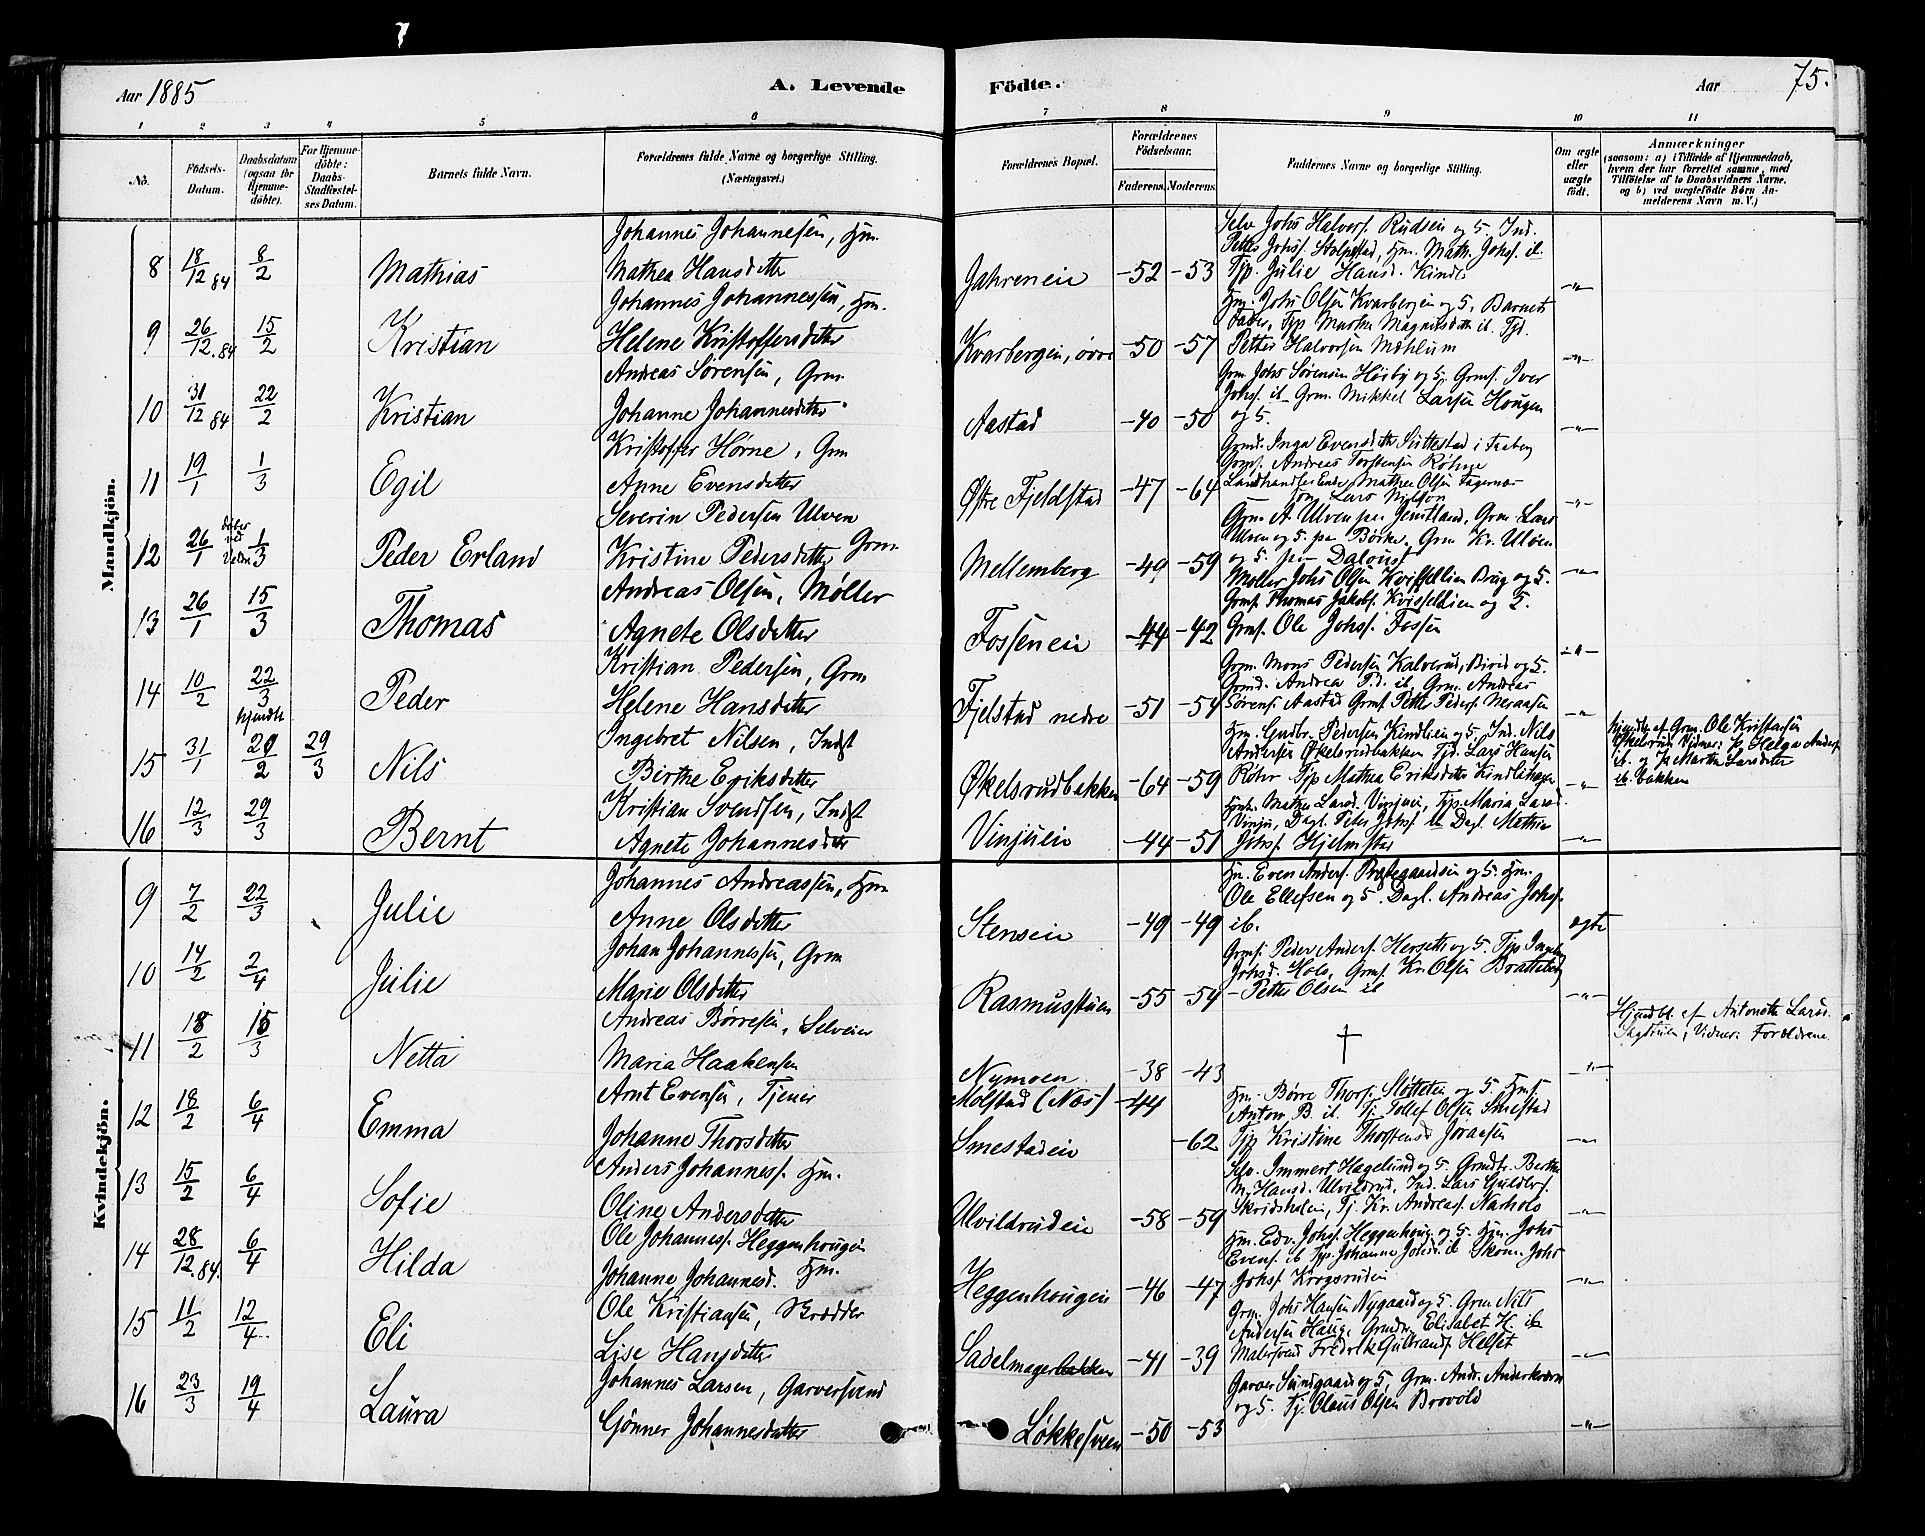 Aar 1885
A. Levende
Födte.
Aar
75.
1 2 3 4 5 6 7 8 9 10 11
No.
Födsels-Datum.
Daabsdatum (ogsaa for Hjemme-döbte).
For Hjemme-döbte: Daabs-Stadfæstel-ses Datum.
Barnets fulde Navn.
Forældrenes fulde Navne og borgerlige Stilling.
(Næringsvei.)
Forældrenes Bopæl.
Forældrenes Födselsaar.
Faderens. Moderens.
Faddernes Navne og borgerlige Stilling.
Om ægte eller uægte födt.
Anmærkninger
(saasom: a) i Tilfælde af Hjemmedaab, hvem der har forrettet samme, med Tilföielse af to Daabsvidners Navne, og b) ved uægtefödte Børn An-melderens Navn m. V.)
Mandkjön.
8 18/12 84 8/2 Mathias
Johannes Johannesen, Hm.
Mathea Hansdatter
Jahreneie -52 -53
Selv Johs Halvors. Rudseie og 5. Ind.
Petter Johs. Stolpestad, Hm. Math. Johs. ib.
Tjp. Julie Hansd. Kindli -"-
9 26/12.84 15/2 Kristian
Johannes Johannessen, Hm.
Helene Kristoffersdatter
Kvarbergeie, øvre -50 -57
Hm. Johs Olsen Kvarbergeie og 5, Barnets
Fader, Tjp Marthe Magnusdatter ib. Tjd.
Petter Halvorsen Mæhlum -"-
10 31/12 84 22/2 Kristian
Andreas Sørensen, Grm.
Johanne Johannesdatter
Aastad -40 -50
Grm Johs Sørensen Høsby og 5, Grmf. Iver
Johsf. ib - Grm. Mikkel Larsen Hougen
og 5. -"-
11 19/1 1/3 Egil
Kristoffer Hørne, Grm
Anne Evensdatter
Østre Fjeldstad -47 -64
Grmd. Inga Evensdatter Suttestad i Faaberg
Grmf. Andreas Torstensen Røhne
Landhandler Enke Mathea Olsen Fagernæs
Jom Lars Nilson -"-
12 26/1 døbt ved Veldre 1/3 Peder Erland
Severin Pedersen Ulven
Kristine Pedersdatter Grm
Mellemberg -49 -59
Grm A. Ulven paa Jemtland, Grm. Lars
Ulven og 5. pa Børke. Grm Kr. Ulven
og 5. pa Dalout -"-
13 26/1 15/3 Thomas
Andreas Olsen, Møller
Agnete Olsdatter
Fosseneie -44 -42
Møller Johs Olsen Kvisfellien Brug og 5.
Grmf. Thomas Jakobs. Kvisfeldien og 5.
Grmf. Ole Johsf. Fossen -"-
14 10/2 22/3 Peder
Kristian Pedersen, Grm
Helene Hansdatter
Fjelstad nedre -51 -54
Grm. Mons Pedersen Kalverud, Birid og 5.
Grmd. Andrea P.d. ib. Grm. Andreas
Sørensf. Aastad Grmf. Petter Pedersf. Meraasen -"-
15 31/1 hjemdbt 20/2 29/3 Nils
Ingebret Nilsen, Indst
Birthe Eriksdatter
Økelsrudbakken -64 -59
Hm. Gudbr. Pedersen Kindlien og 5. Ind. Nils
Andersen Økelsrudbakken Tjd. Lars Hansen
Røhr Tjp Mathea Eriksdatter Kindlihagen -"-
hjemdbt af Grm. Ole Kristiansen
Økelsrud Vidner: Tp Helga Andersd
ib. og Tp Martha Larsdatter
ib. bakken
16 12/3 29/3 Bernt
Kristian Svendsen, Indst
Agnete Johannesdatter
Vinjueie -44 -51
Hmk. Mathea Larsd. Vinjueie, Tjp. Maria Larsd.
Vinju, Dagl. Peter Johsf ib Dagl. Mathias
Johsf. Hjelmstad -"-
Kvindekjön.
9 7/2 22/3 Julie
Johannes Andreassen, Hm
Anne Olsdatter
Stenseie -49 -49
Hm. Even Andersf. Prestegaardseie og 5. Hm.
Ole Ellefsen og 5. Dagl. Andreas Johsf.
ib. ægte
10 14/2 2/4 Julie
Johan Johannessen, Grm
Marie Olsdatter
Rasmusstuen -55 -54
Grmf. Peder Andersf. Herseth og 5. Tjp Ingeb.
Johsd. Holo, Grmf. Kr. Olsen Bratteberg
- Petter Olsen ib -"-
11 18/2 15/3 Netta
Andreas Børresen, Selveier
Maria Haakensen
Nymoen -38 -43
† -"-
Hjemdbt. af Antonette Larsd.
Sagstuen, Vidner: Forældrene.
12 18/2 6/4 Emma
Arnt Evensen, Tjener
Johanne Thorsdatter
Molstad (Næs) -44
Smestadeie -62
Hm. Børre Thorsf. Sletteeie og 5 Hmf.
Anton B. ib. Tj. Tollef Olsen Smestad
Tjp Kristine Thorstensd Joraasen -"-
13 15/2 6/4 Sofie
Anders Johannesf. Hm.
Oline Andersdatter
Ulvildrudeie -58 -59
Selv. Immert Hagelund og 5. Grmdtr. Berthe
M. Hansd. Ulvildrud. Ind. Lars Guldbrf.
Skridsholen, Tj. Kr. Andreasf. Narholo -"-
14 28/12.84. 6/4 Hilda
Ole Johannesf. Heggenhougen
Johanne Johannesd. Hm.
Heggenhougeie -46 -47
Hm. Edv. Johsf. Heggenhoug. og 5. Hm. Johs
Evensf. ib Tjp. Johanne Johsd. ib Skom. Johs
Johsf. Krogsrudeie -"-
15 11/2 12/4 Eli
Ole Kristiansen, Skrædder
Lise Hansdatter
Sadelmagerbakken -41 -39
Grm. Johs Hansen Nygaard og 5. Grm Nils
Andersen Haug, Grmdtr. Elisabet H. ib
Malersvend Fredrik Gulbrandf. Helset -"-
16 23/3 19/4 Laura
Johannes Larsen, Garversvend
Gønner Johannesdatter
Løkkesveen -50 -53
Garver Sundgaard og 5, Grm. Andr. Anderkværn
og 5. Tj. Olaus Olsen Brovold -"-